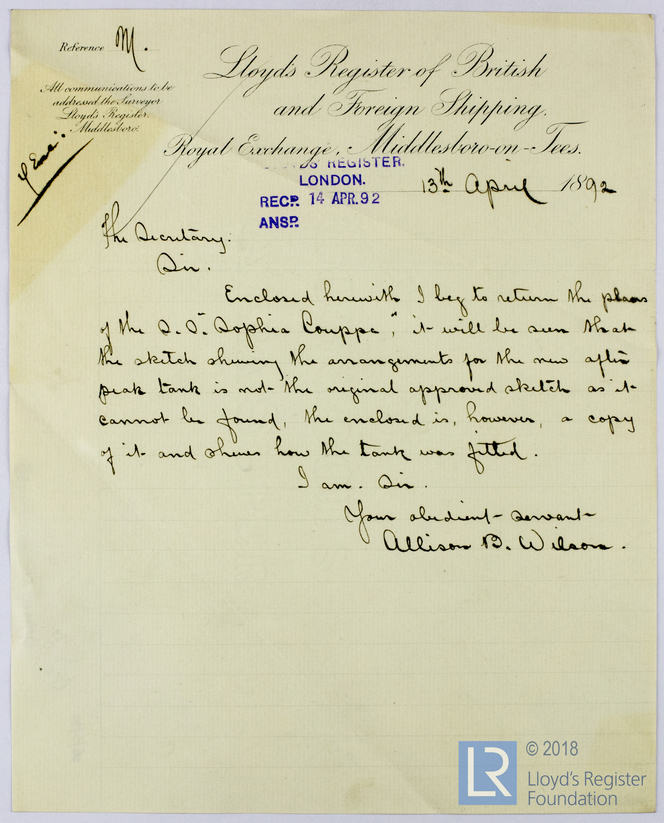 Reference M.
All communications to be
addressed the Surveyor
Lloyd's Register.
Middlesboro.
Lloyd's Register of British
and Foreign Shipping.
Royal Exchange, Middlesboro-on-Tees.
LLOYD'S REGISTER.
LONDON.
RECD. 14 APR. 92
ANSD.
13th April 1892
The Secretary.
Sir.
Enclosed herewith I beg to return the plans
of the S.S. "Sophia Couppa", it will be seen that
the sketch shewing the arrangements for the new after
peak tank is not the original approved sketch as it
cannot be found, the enclosed is, however, a copy
of it and shews how the tank was fitted.
I am. Sir.
Your obedient servant
Allison B. Wilson.
LR
© 2018
Lloyd's Register
Foundation